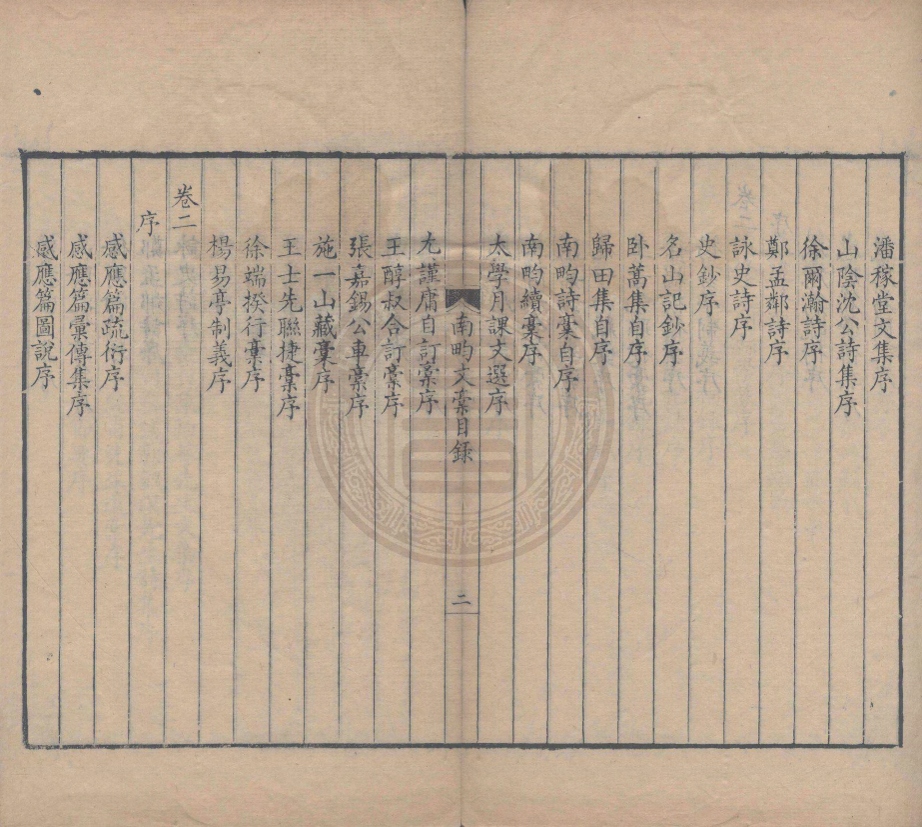 潘稼堂文集序
山陰沈公詩集序
徐爾瀚詩序
鄭孟鄰詩序
詠史詩序
史鈔序
名山記鈔序
卧蒿集自序
歸田集自序
南畇詩稾自序
南畇續稾序
太學月課文選序
南畇文稾目錄
二
尤謹庸自訂稾序
王醇叔合訂稾序
張嘉錫公車稾序
施一山藏稾序
王士先聯捷稾序
徐端揆行稾序
楊易亭制義序
卷二
序
感應篇疏衍序
感應篇彙傳集序
感應篇圖說序